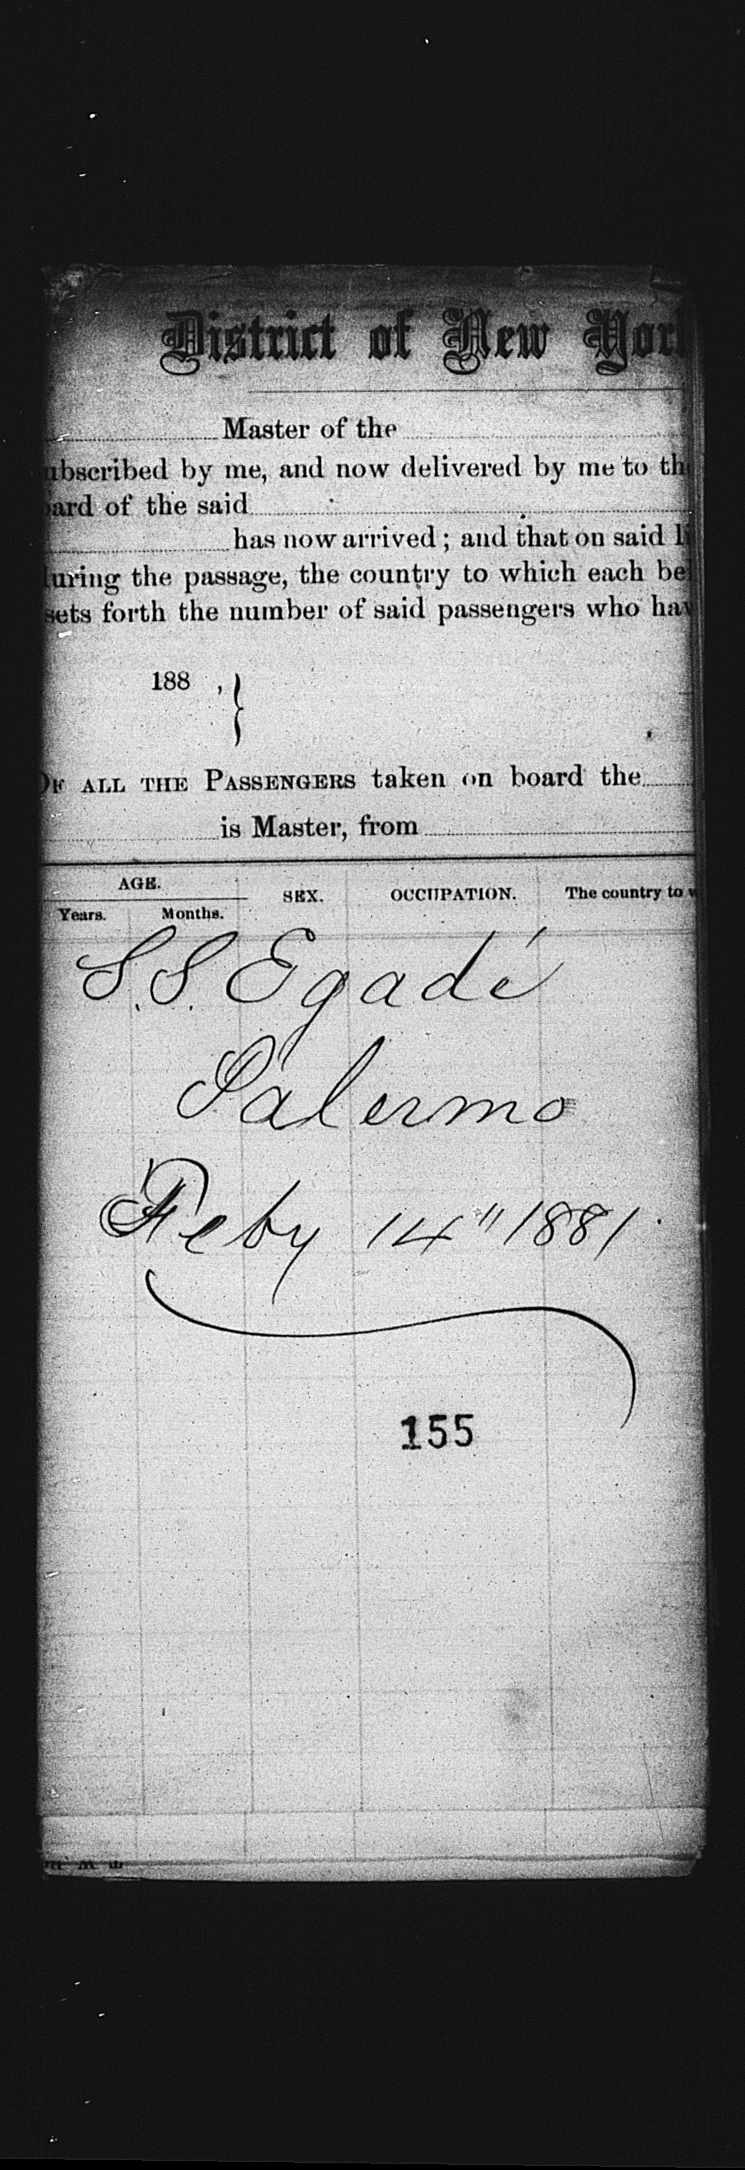 District of New Yor
Master of the
ubscribed by me, and now delivered by me to th
ard of the said
has now arrived ; and that on said li
uring the passage, the country to which each be
sets forth the number of said passengers who hav
188 , }
OF ALL THE PASSENGERS taken on board the
is Master, from
AGE. SEX. OCCUPATION. The country to w
Years. Months.
S.S. Egadi
Palermo
Feby 14" 1881.
155